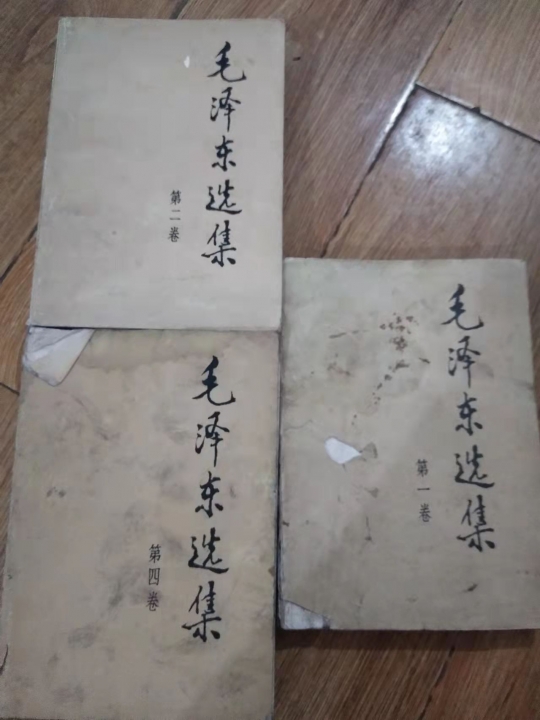 毛泽东选集
第二卷
毛泽东选集
第四卷
毛泽东选集
第一卷